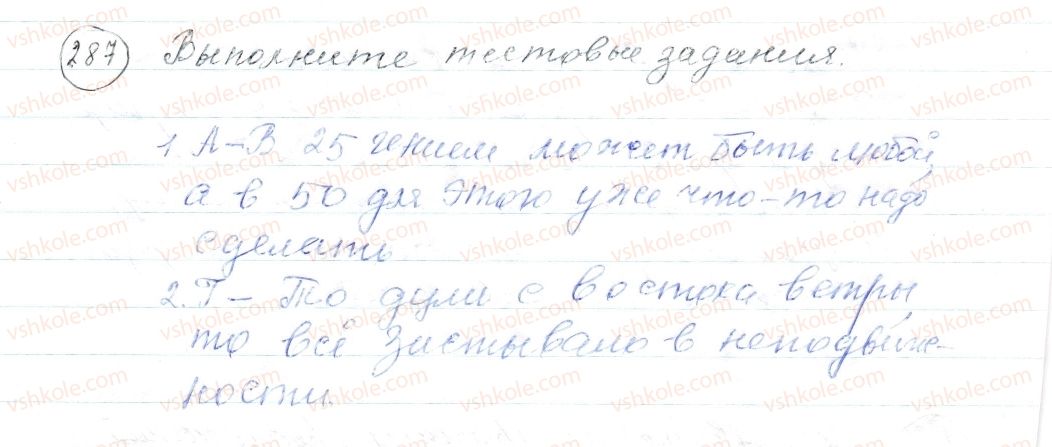 287 Выполните тестовые задания.
1. А – В 25 гением может быть любой,
а в 50 для этого уже что-то надо
сделать
2. Г – То дули с востока ветры,
то всё застывало в неподвиж-
ности.